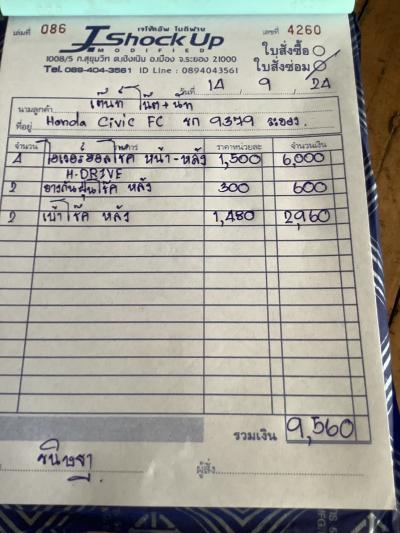 เล่มที่ 086
เจโช๊คอัพ โมดิฟาย
เลขที่ 4260
J Shock Up
MODIFIED
ใบสั่งซื้อ
1008/5 ถ.สุขุมวิท ต.เชิงเนิน อ.เมือง จ.ระยอง 21000
ใบสั่งซ่อม
Tel.089-404-3561 ID Line : 0894043561
วันที่ 14 / 9 / 24
นามลูกค้า เต็นท์ โน๊ต+นท
ที่อยู่ Honda Civic FC ขก 9379 ระยอง
จำนวน รายการ ราคาหน่วยละ จำนวนเงิน
4 โช๊ค หน้า-หลัง 1,500 6,000
H-DRIVE
2 ยางกันฝุ่นโช๊ค หลัง 300 600
2 เบ้าโช๊ค หลัง 1,480 2,960
รวมเงิน 9,560
ผู้สั่ง